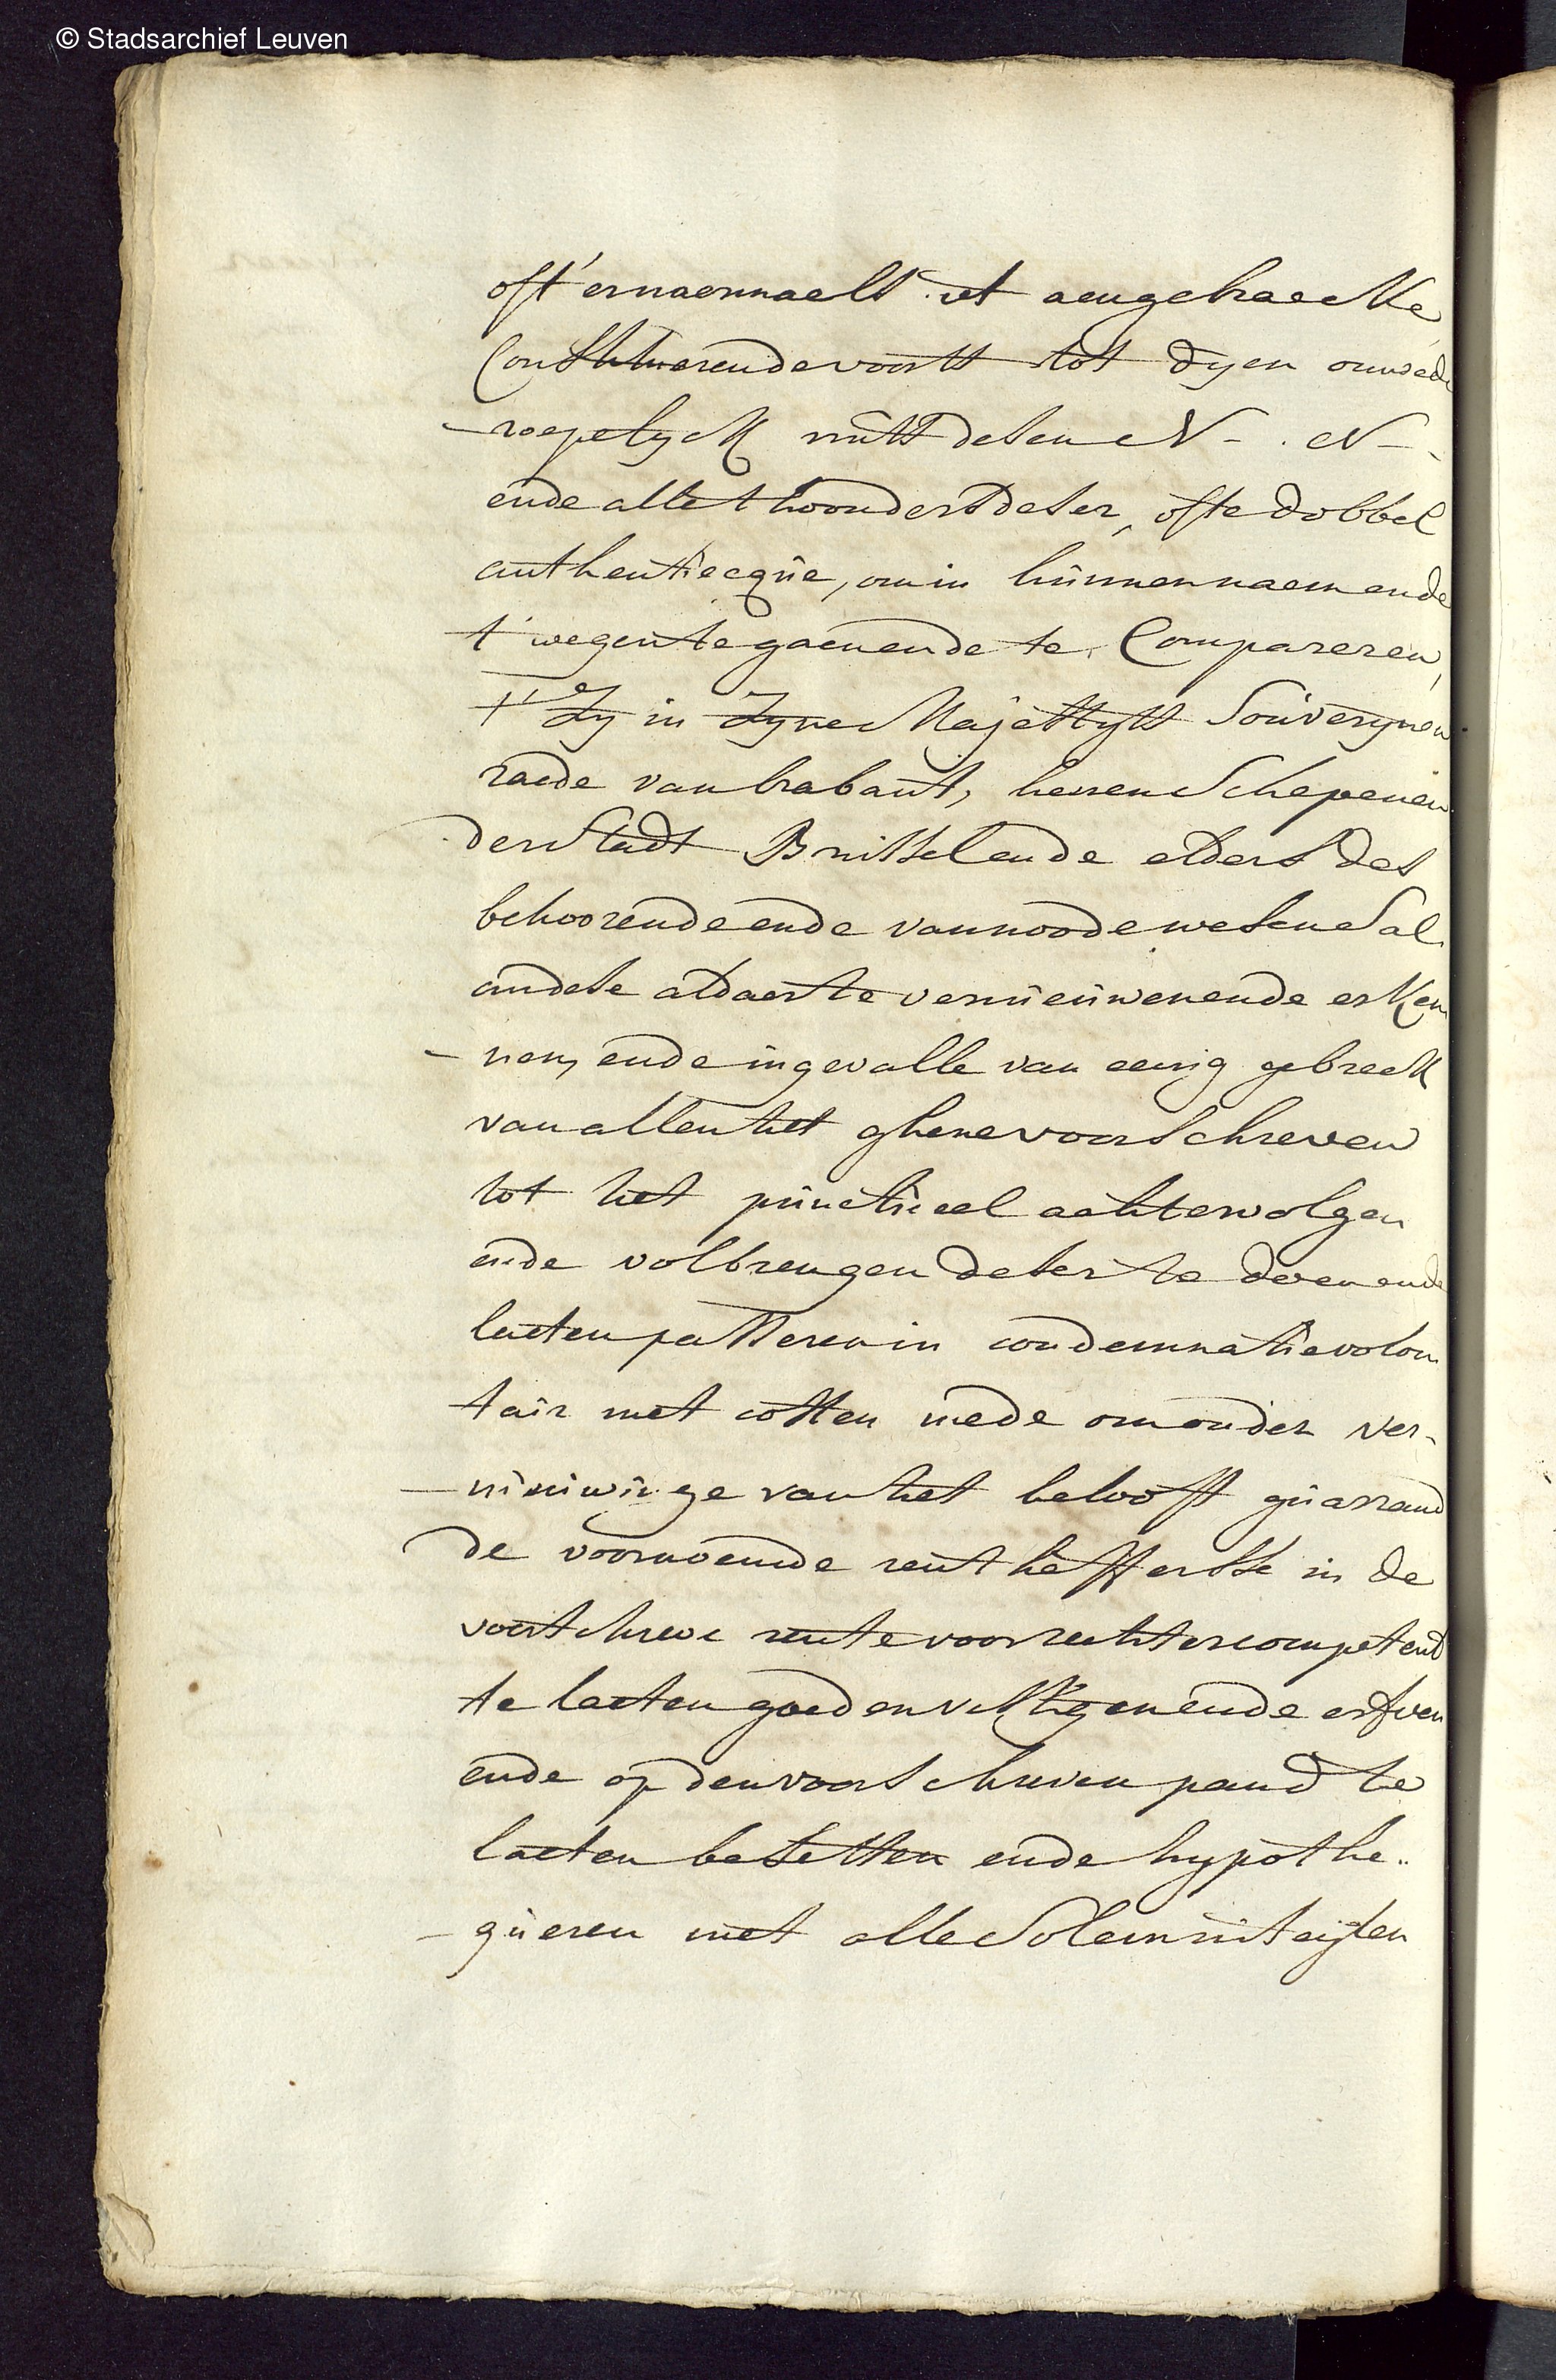 © Stadsarchief Leuven
oft ernaermaels uet aengebraeckte
Constituerende voorts tot dyen onwede
-roepelyck mits desen N - . N -
ende alle thoonders deser, ofte dobbel
authentiecque, om in hunnen naem ende
t'wegen te gaen ende te Compareren,
t'Zy in Zyne Majestyts Souverynen
raede van brabant, heeren Schepenen
der Stadt Brussel ende elders des
behoorende ende van noode wesen Sal
om dese aldaer te vernieuwen ende erken
-nen, ende ingevalle van eenig gebreck
van allen het ghene voorschreven
tot het punctueel achtervolgen
ende volbrengen deser te doen ende
laeten passeren in condemnatie volon
tair met costen mede om onder ver-
-nieuwinge van het belooft guarrand
de voornoemde rentheffersse in de
voorschreve rente voor rechter competent
te laeten goeden vestigen ende erfven
ende op den voorschreven pand te
laeten besetten ende hypothe..
-queren met alle Solemniteyten